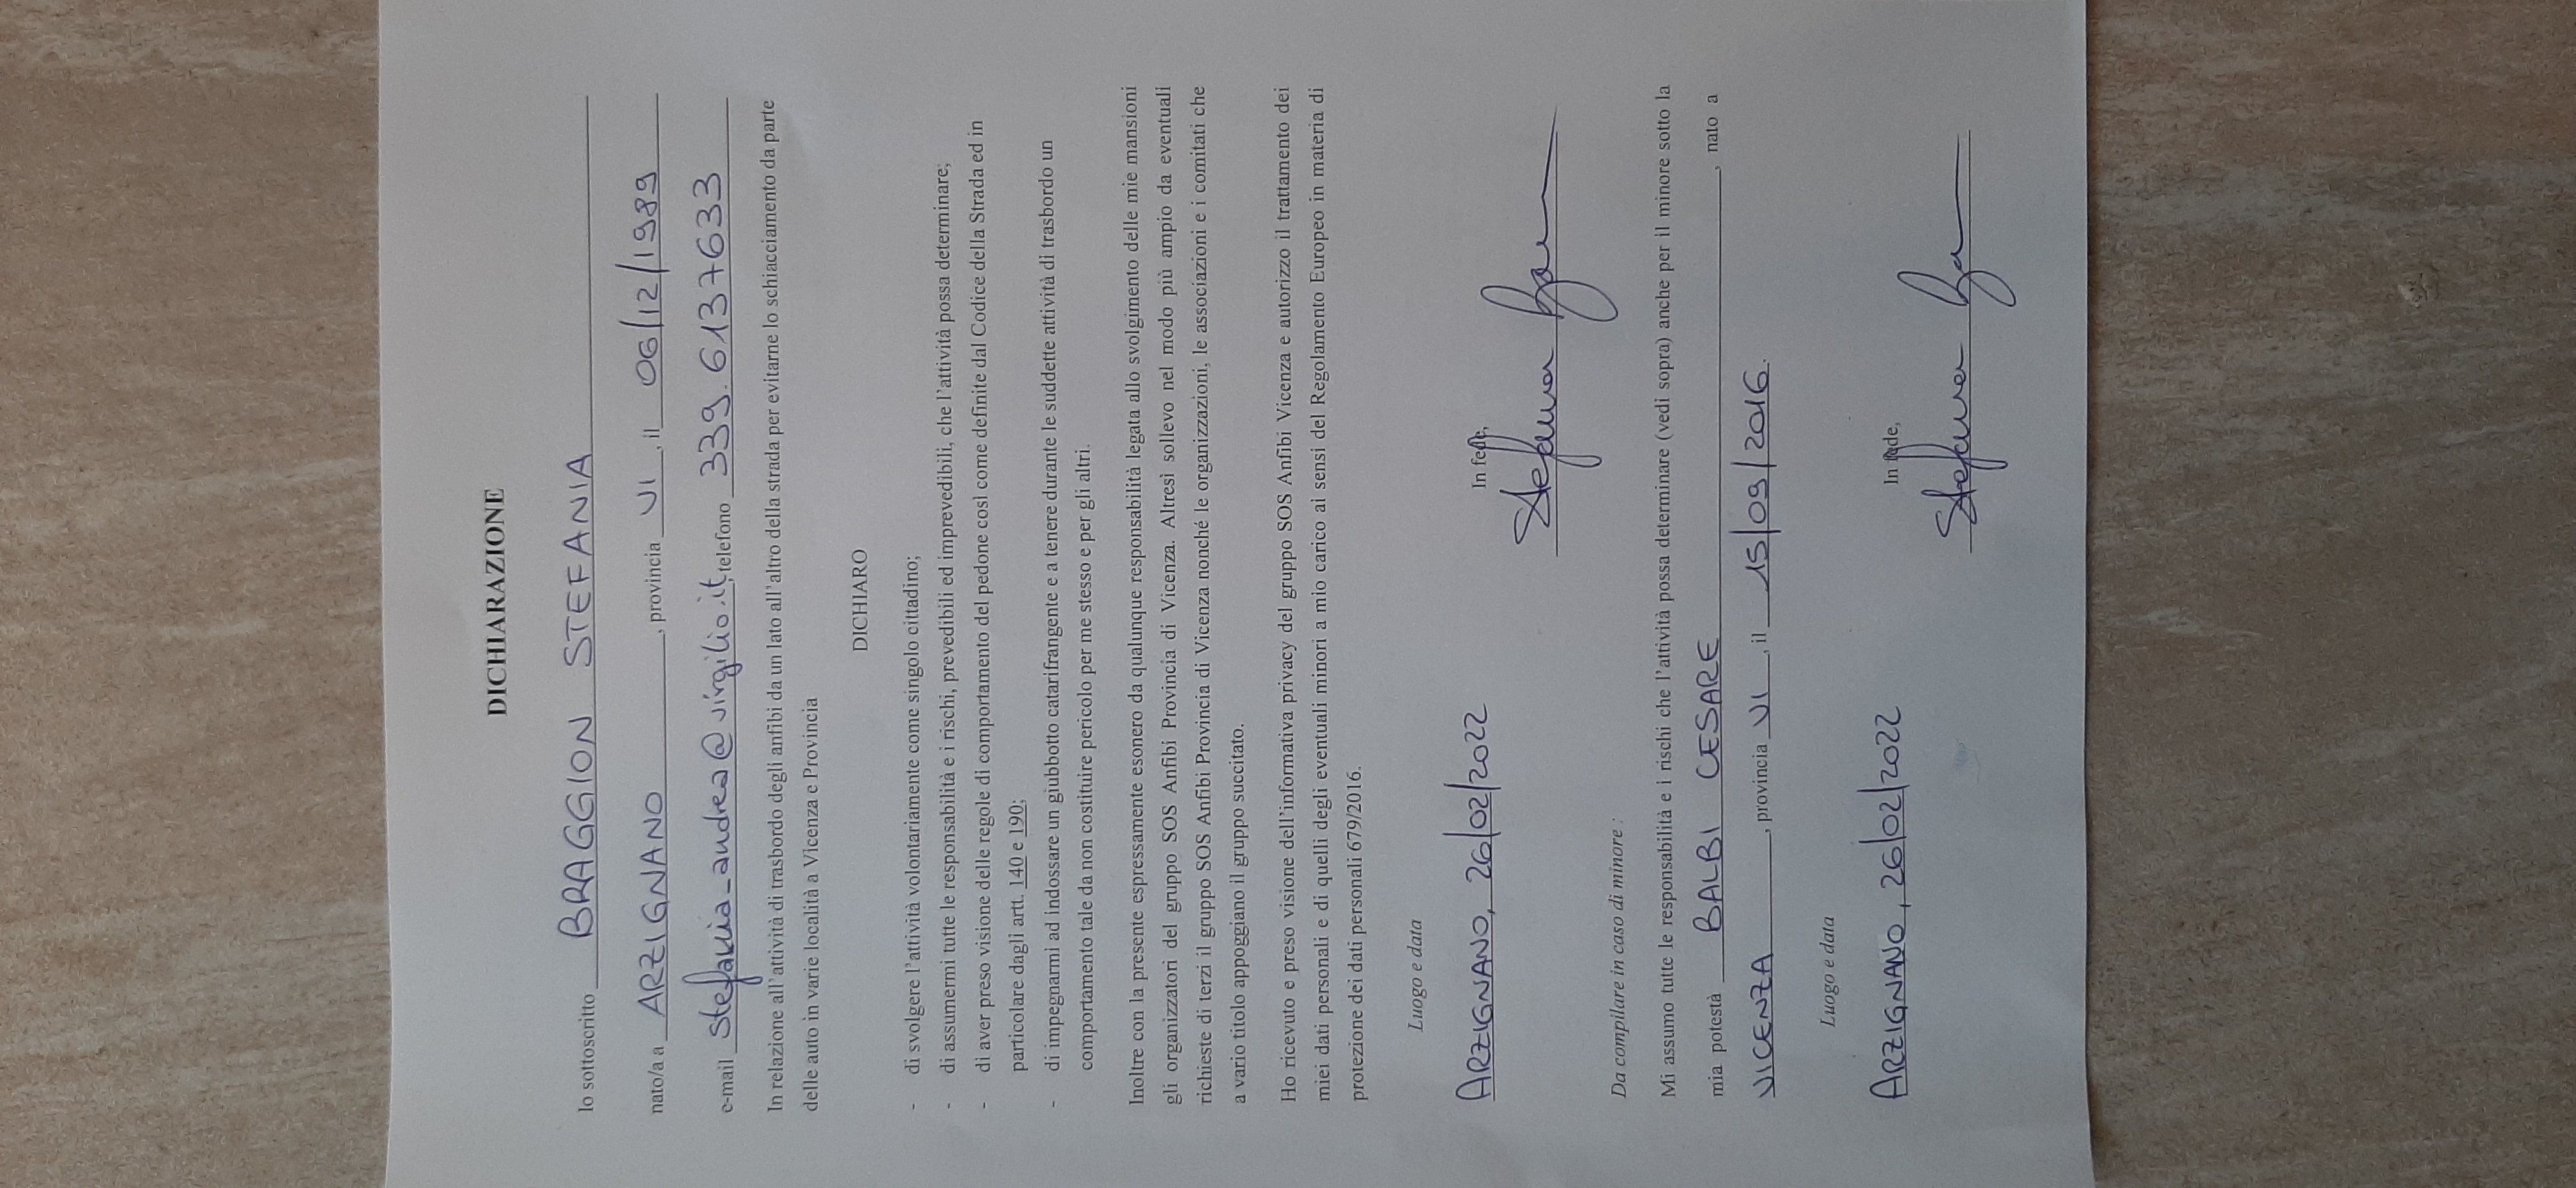 DICHIARAZIONE
Io sottoscritto BRAGGION STEFANIA
nato/a a ARZIGNANO, provincia VI, il 06/12/1989
e-mail stefania_andrea@virgilio.it, telefono 339.6137633
In relazione all'attività di trasbordo degli anfibi da un lato all'altro della strada per evitarne lo schiacciamento da parte
delle auto in varie località a Vicenza e Provincia
DICHIARO
- di svolgere l'attività volontariamente come singolo cittadino;
- di assumermi tutte le responsabilità e i rischi, prevedibili ed imprevedibili, che l'attività possa determinare;
- di aver preso visione delle regole di comportamento del pedone così come definite dal Codice della Strada ed in
particolare dagli artt. 140 e 190;
- di impegnarmi ad indossare un giubbotto catarifrangente e a tenere durante le suddette attività di trasbordo un
comportamento tale da non costituire pericolo per me stesso e per gli altri.
Inoltre con la presente espressamente esonero da qualunque responsabilità legata allo svolgimento delle mie mansioni
gli organizzatori del gruppo SOS Anfibi Provincia di Vicenza. Altresì sollevo nel modo più ampio da eventuali
richieste di terzi il gruppo SOS Anfibi Provincia di Vicenza nonché le organizzazioni, le associazioni e i comitati che
a vario titolo appoggiano il gruppo succitato.
Ho ricevuto e preso visione dell'informativa privacy del gruppo SOS Anfibi Vicenza e autorizzo il trattamento dei
miei dati personali e di quelli degli eventuali minori a mio carico ai sensi del Regolamento Europeo in materia di
protezione dei dati personali 679/2016.
Luogo e data
ARZIGNANO, 26/02/2022
In fede,
Stefania
Da compilare in caso di minore :
Mi assumo tutte le responsabilità e i rischi che l'attività possa determinare (vedi sopra) anche per il minore sotto la
mia potestà BALBI CESARE, nato a
VICENZA, provincia VI, il 15/09/2016.
Luogo e data
ARZIGNANO, 26/02/2022
In fede,
Stefania